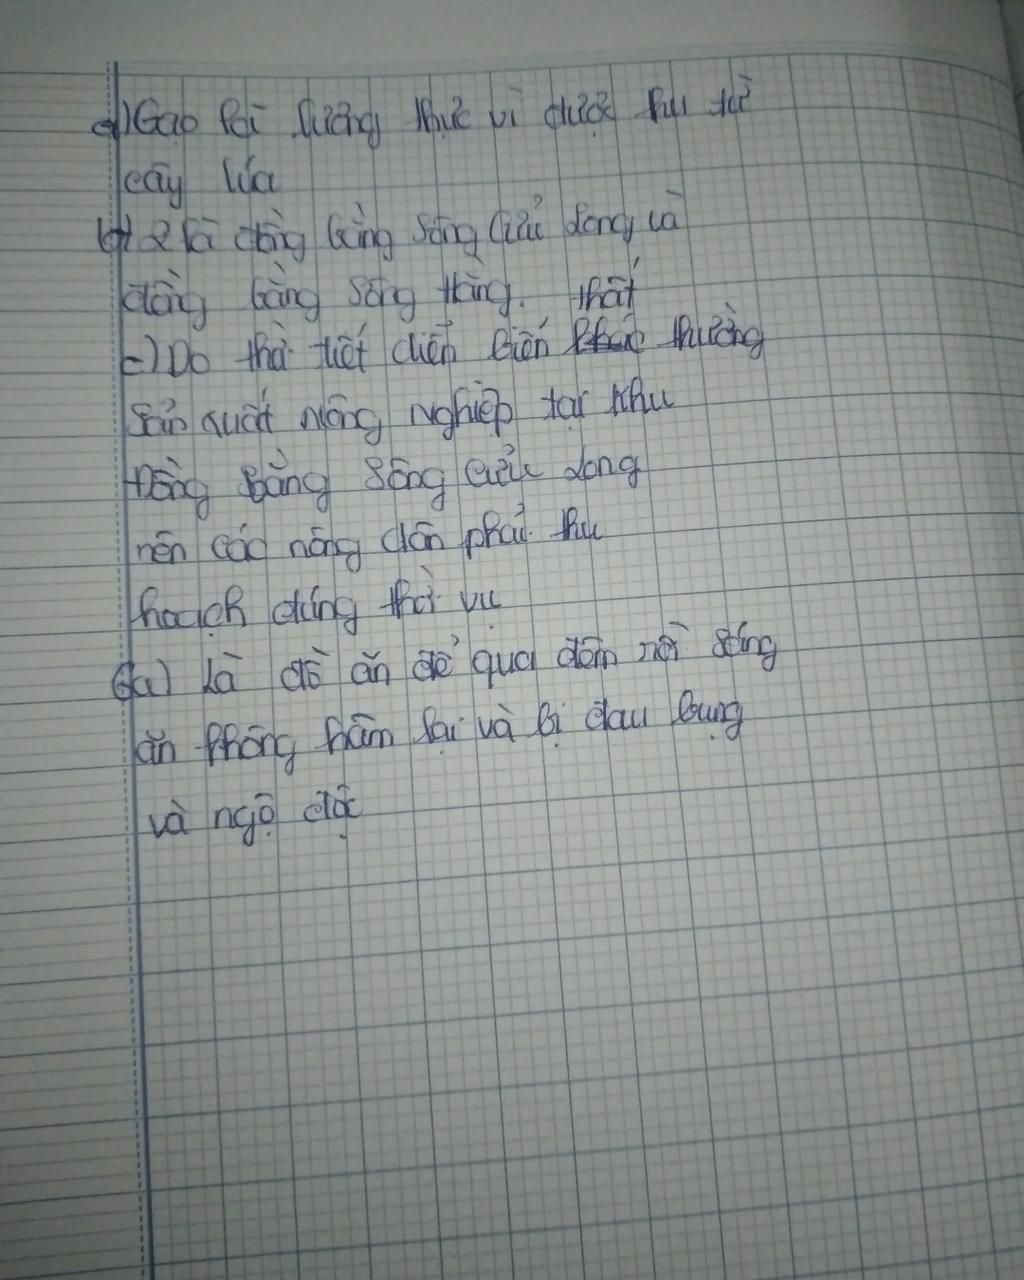 a) Gạo là lương thực vì được thu từ
cây lúa
b) 2 là đồng bằng sông Cửu Long và
đồng bằng sông Hồng. thất
c) Do thời tiết diễn biến thường
sản xuất nông nghiệp tại khu
Đồng Bằng Sông Cửu Long
nên các nông dân phải thu
hoạch đúng thời vụ
6a) Là đồ ăn để qua đêm rồi sáng
ăn không hâm lại và bị đau bụng
và ngộ độc